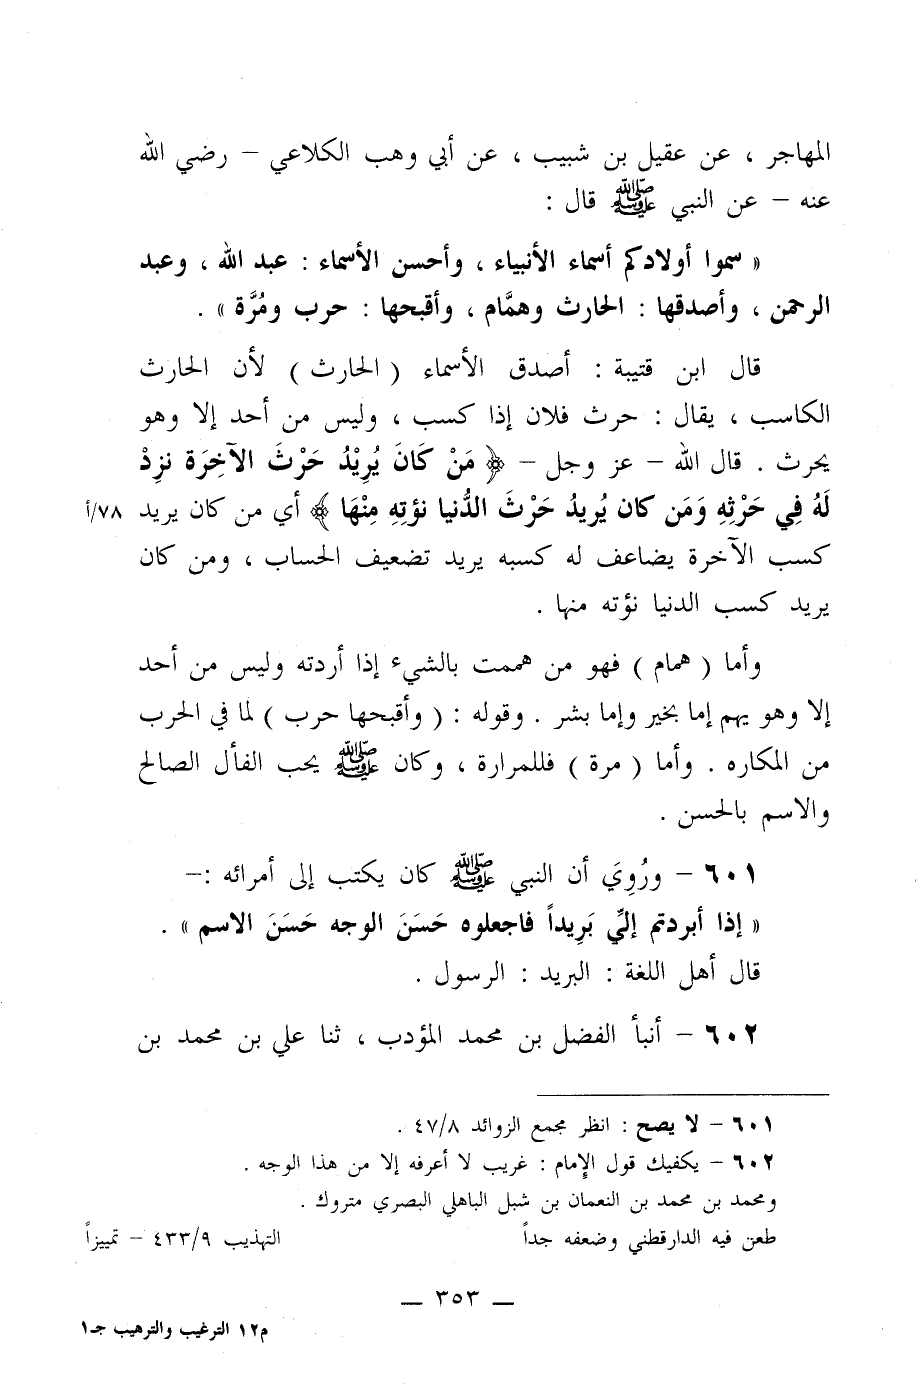 المهاجر ، عن عقيل بن شبيب ، عن أبي وهب الكلاعي – رضي الله
عنه – عن النبي ﷺ قال :
« سموا أولادكم أسماء الأنبياء ، وأحسن الأسماء : عبد الله ، وعبد
الرحمن ، وأصدقها : الحارث وهمَّام ، وأقبحها : حرب ومُرَّة » .
قال ابن قتيبة : أصدق الأسماء ( الحارث ) لأن الحارث
الكاسب ، يقال : حرث فلان إذا كسب ، وليس من أحد إلا وهو
يحرث . قال الله – عز وجل – ﴿ مَنْ كَانَ يُرِيْدُ حَرْثَ الآخِرَة نزِدْ
لَهُ فِي حَرْثِهِ وَمَن كان يُرِيدُ حَرْثَ الدُّنيا نؤتِهِ مِنْهَا ﴾ أي من كان يريد ٧٨/أ
كسب الآخرة يضاعف له كسبه يريد تضعيف الحساب ، ومن كان
يريد كسب الدنيا نؤته منها .
وأما ( همام ) فهو من هممت بالشيء إذا أردته وليس من أحد
إلا وهو يهم إما بخير وإما بشر . وقوله : ( وأقبحها حرب ) لما في الحرب
من المكاره . وأما ( مرة ) فللمرارة ، وكان ﷺ يحب الفأل الصالح
والاسم بالحسن .
٦٠١ – ورُوِيَ أن النبي ﷺ كان يكتب إلى أمرائه :–
« إذا أبردتم إليِّ بَرِيداً فاجعلوه حَسَنَ الوجه حَسَنَ الاسم » .
قال أهل اللغة : البريد : الرسول .
٦٠٢ – أنبأ الفضل بن محمد المؤدب ، ثنا علي بن محمد بن
٦٠١ – لا يصح : انظر مجمع الزوائد ٤٧/٨ .
٦٠٢ – يكفيك قول الإمام : غريب لا أعرفه إلا من هذا الوجه .
ومحمد بن محمد بن النعمان بن شبل الباهلي البصري متروك .
طعن فيه الدارقطني وضعفه جداً التهذيب ٤٣٣/٩ – تمييزاً
— ٣٥٣ —
م١٢ الترغيب والترهيب جـ١